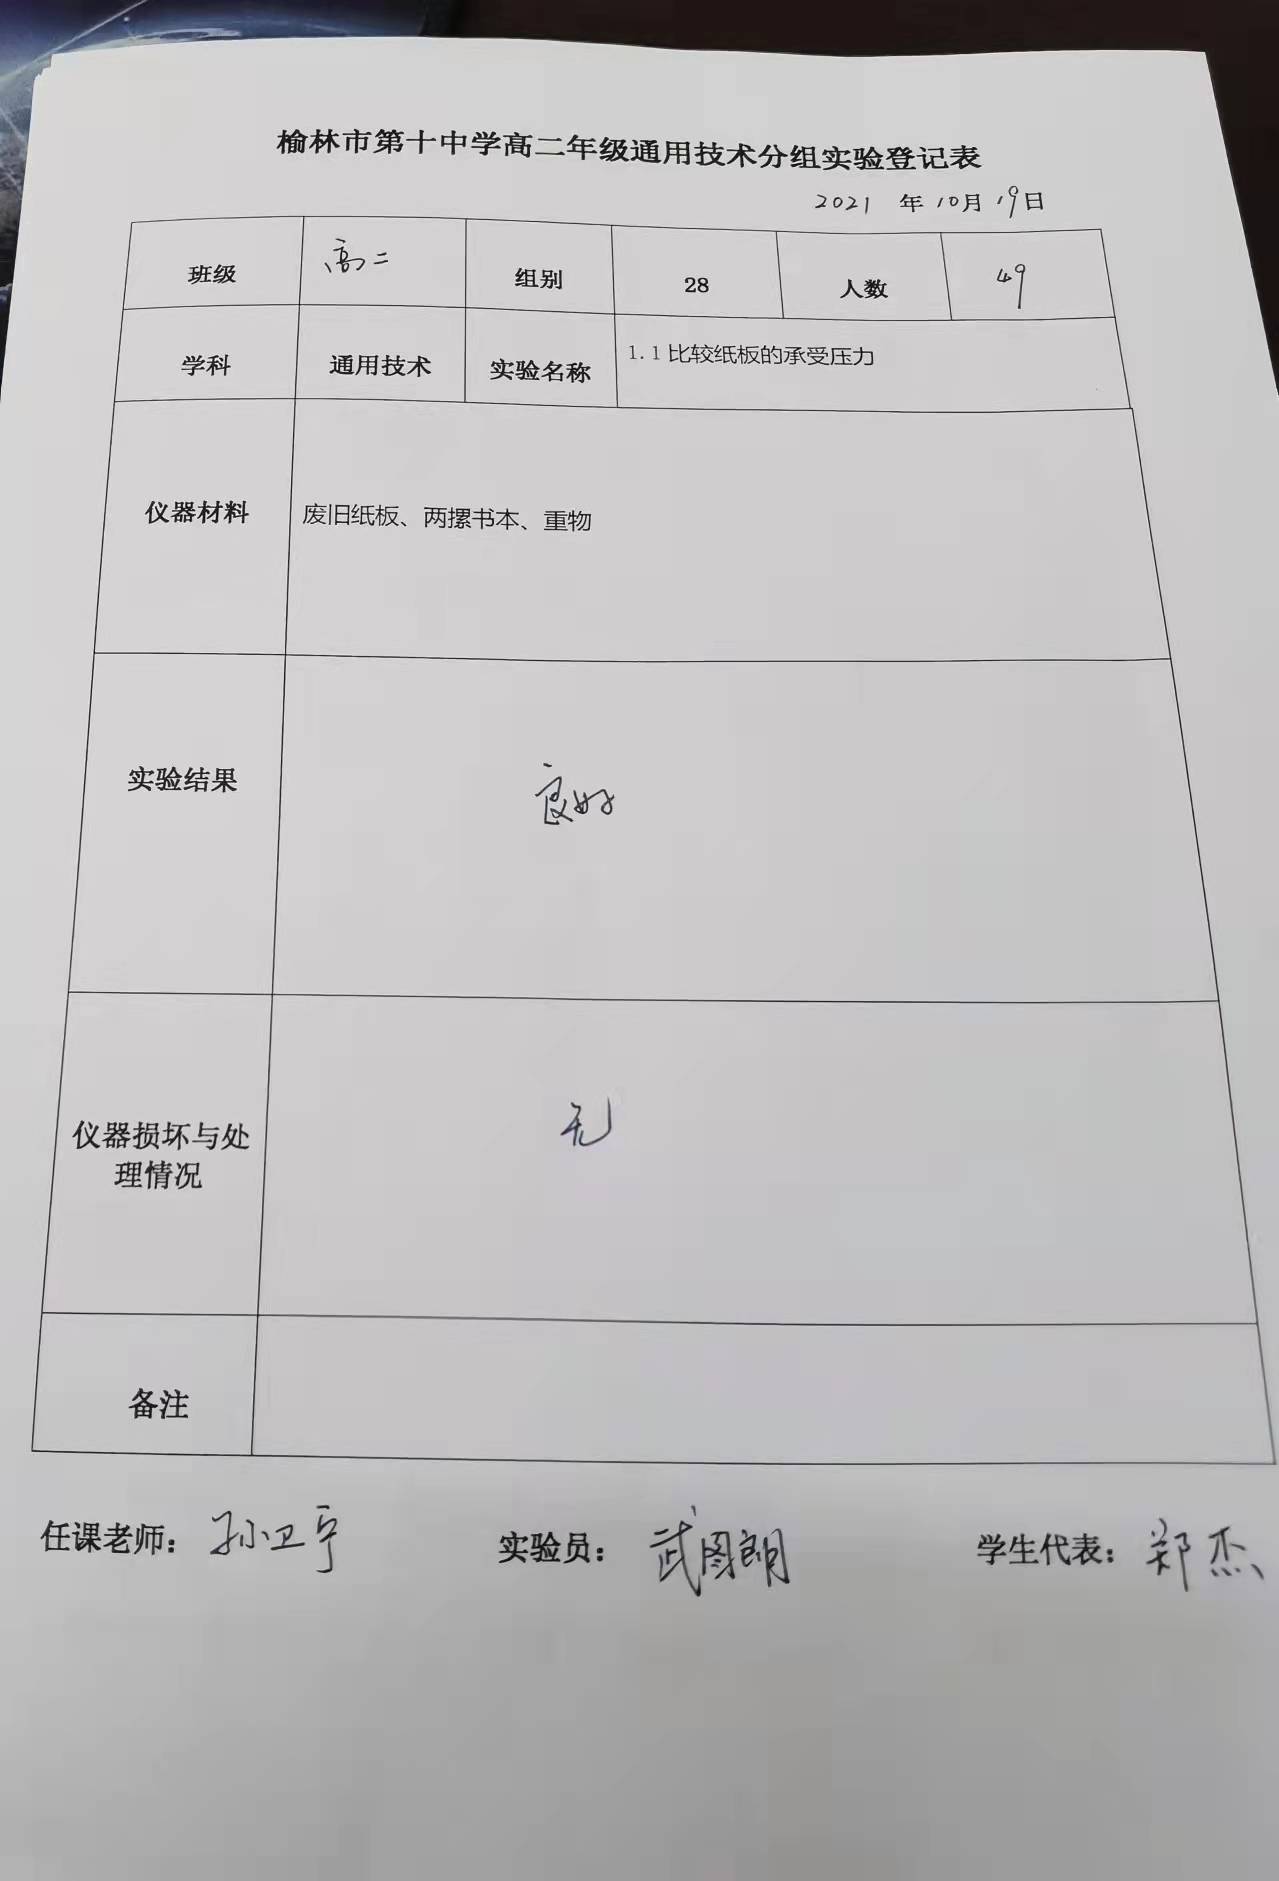 榆林市第十中学高二年级通用技术分组实验登记表
2021 年 10月 19日
班级 高二 组别 28 人数 49
学科 通用技术 实验名称 1.1 比较纸板的承受压力
仪器材料 废旧纸板、两摞书本、重物
实验结果 良好
仪器损坏与处
理情况 无
备注
任课老师： 孙卫宁 实验员： 武图朗 学生代表： 郑杰